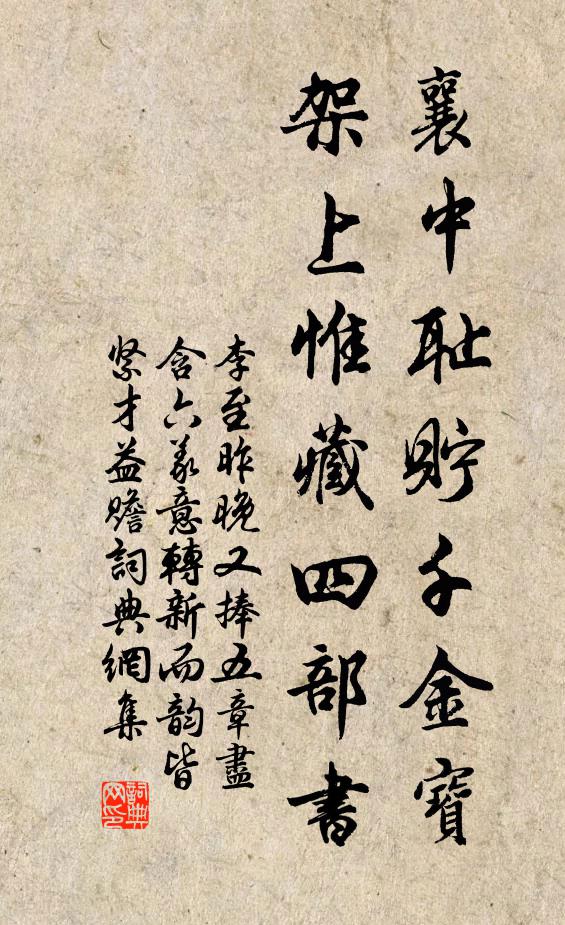 襄中耻貯千金寶
架上惟藏四部書
李至昨晚又捧五章盡
含六義意轉新而韵皆
緊才益贍詞典網集
詞典網印